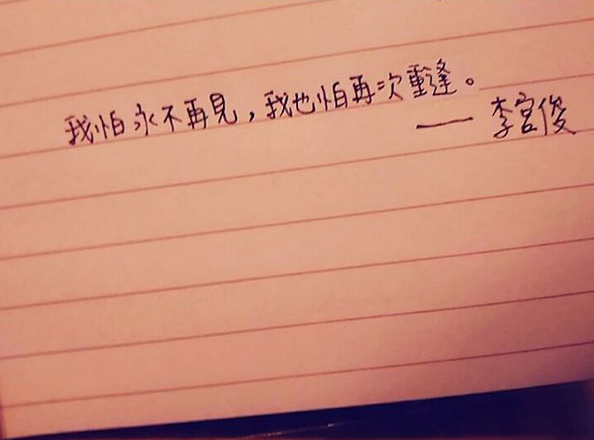 我怕永不再見，我也怕再次重逢。
── 李宮俊